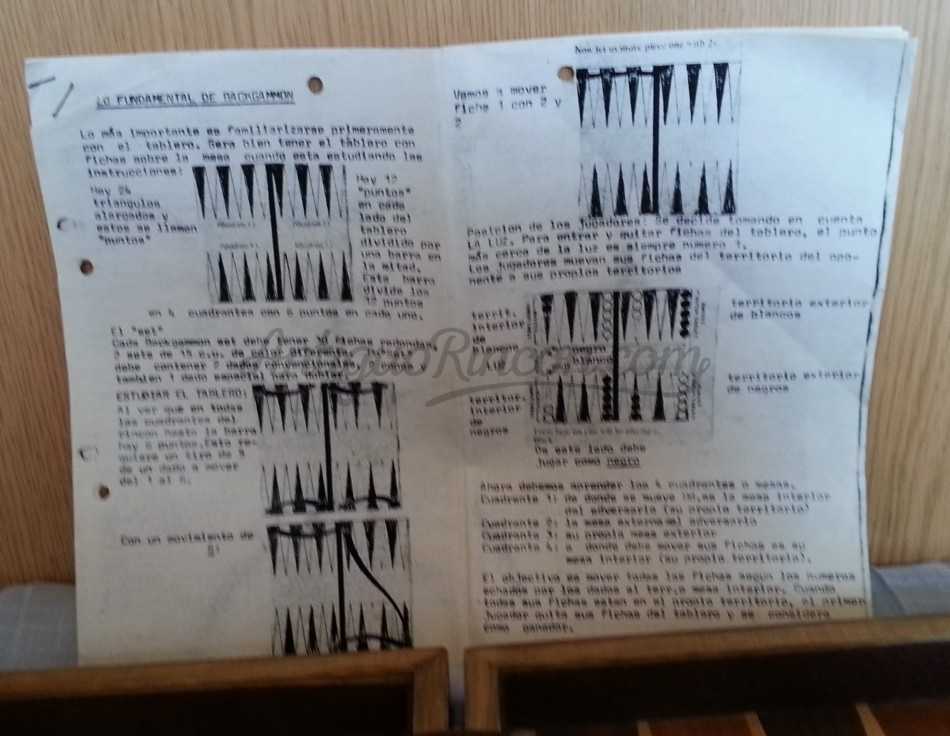 LO FUNDAMENTAL DE BACKGAMMON
Lo más importante es familiarizarse primeramente
con el tablero. Sera bien tener el tablero con
fichas sobre la mesa cuando esta estudiando las
instrucciones:
Hay 24
triangulos
alargados y
estos se llaman
"puntos"
Hay 12
"puntos"
en cada
lado del
tablero
dividido por
una barra en
la mitad.
Esta barra
divide los
puntos
en 4 cuadrantes con 6 puntos en cada uno.
El "set"
Cada Backgammon set debe tener 30 fichas redondas,
2 sets de 15 c.u. de color diferente.
debe contener 2 dados convencionales,
tambien 1 dado especial para doblar.
ESTUDIAR EL TABLERO:
Al ver que en todas
las cuadrantes del
rincon hasta la barra
hay 6 puntos. Esto re-
quiere un tiro de 5
de un dado a mover
del 1 al 6.
Con un movimiento de
5:
Now let us move piece one with 2s
Vamos a mover
ficha 1 con 2 y
2
Posicion de los jugadores: Se decide tomando en cuenta
LA LUZ. Para entrar y quitar fichas del tablero, el punto
más cerca de la luz es siempre numero 1.
Los jugadores muevan sus fichas del territorio del opo-
nente a sus propios territorios
territ.
interior
de
blancos
negro
blanco
territorio exterior
de blancos
territor.
interior
de
negros
territorio exterior
de negros
De este lado debe
jugar como negro
Ahora debemos aprender los 4 cuadrantes o mesas.
Cuadrante 1: de donde se mueve Ud. es la mesa interior
del adversario (su propio territorio)
Cuadrante 2: la mesa externa del adversario
Cuadrante 3: su propia mesa exterior
Cuadrante 4: a donde debe mover sus fichas es su
mesa interior (su propio territorio).
El objectivo es mover todas las fichas segun los numeros
echados por los dados al terr.o mesa interior. Cuando
todas sus fichas esten en el propio territorio, el primer
jugador quita sus fichas del tablero y se considera
como ganador.
AntiguoRincon.com